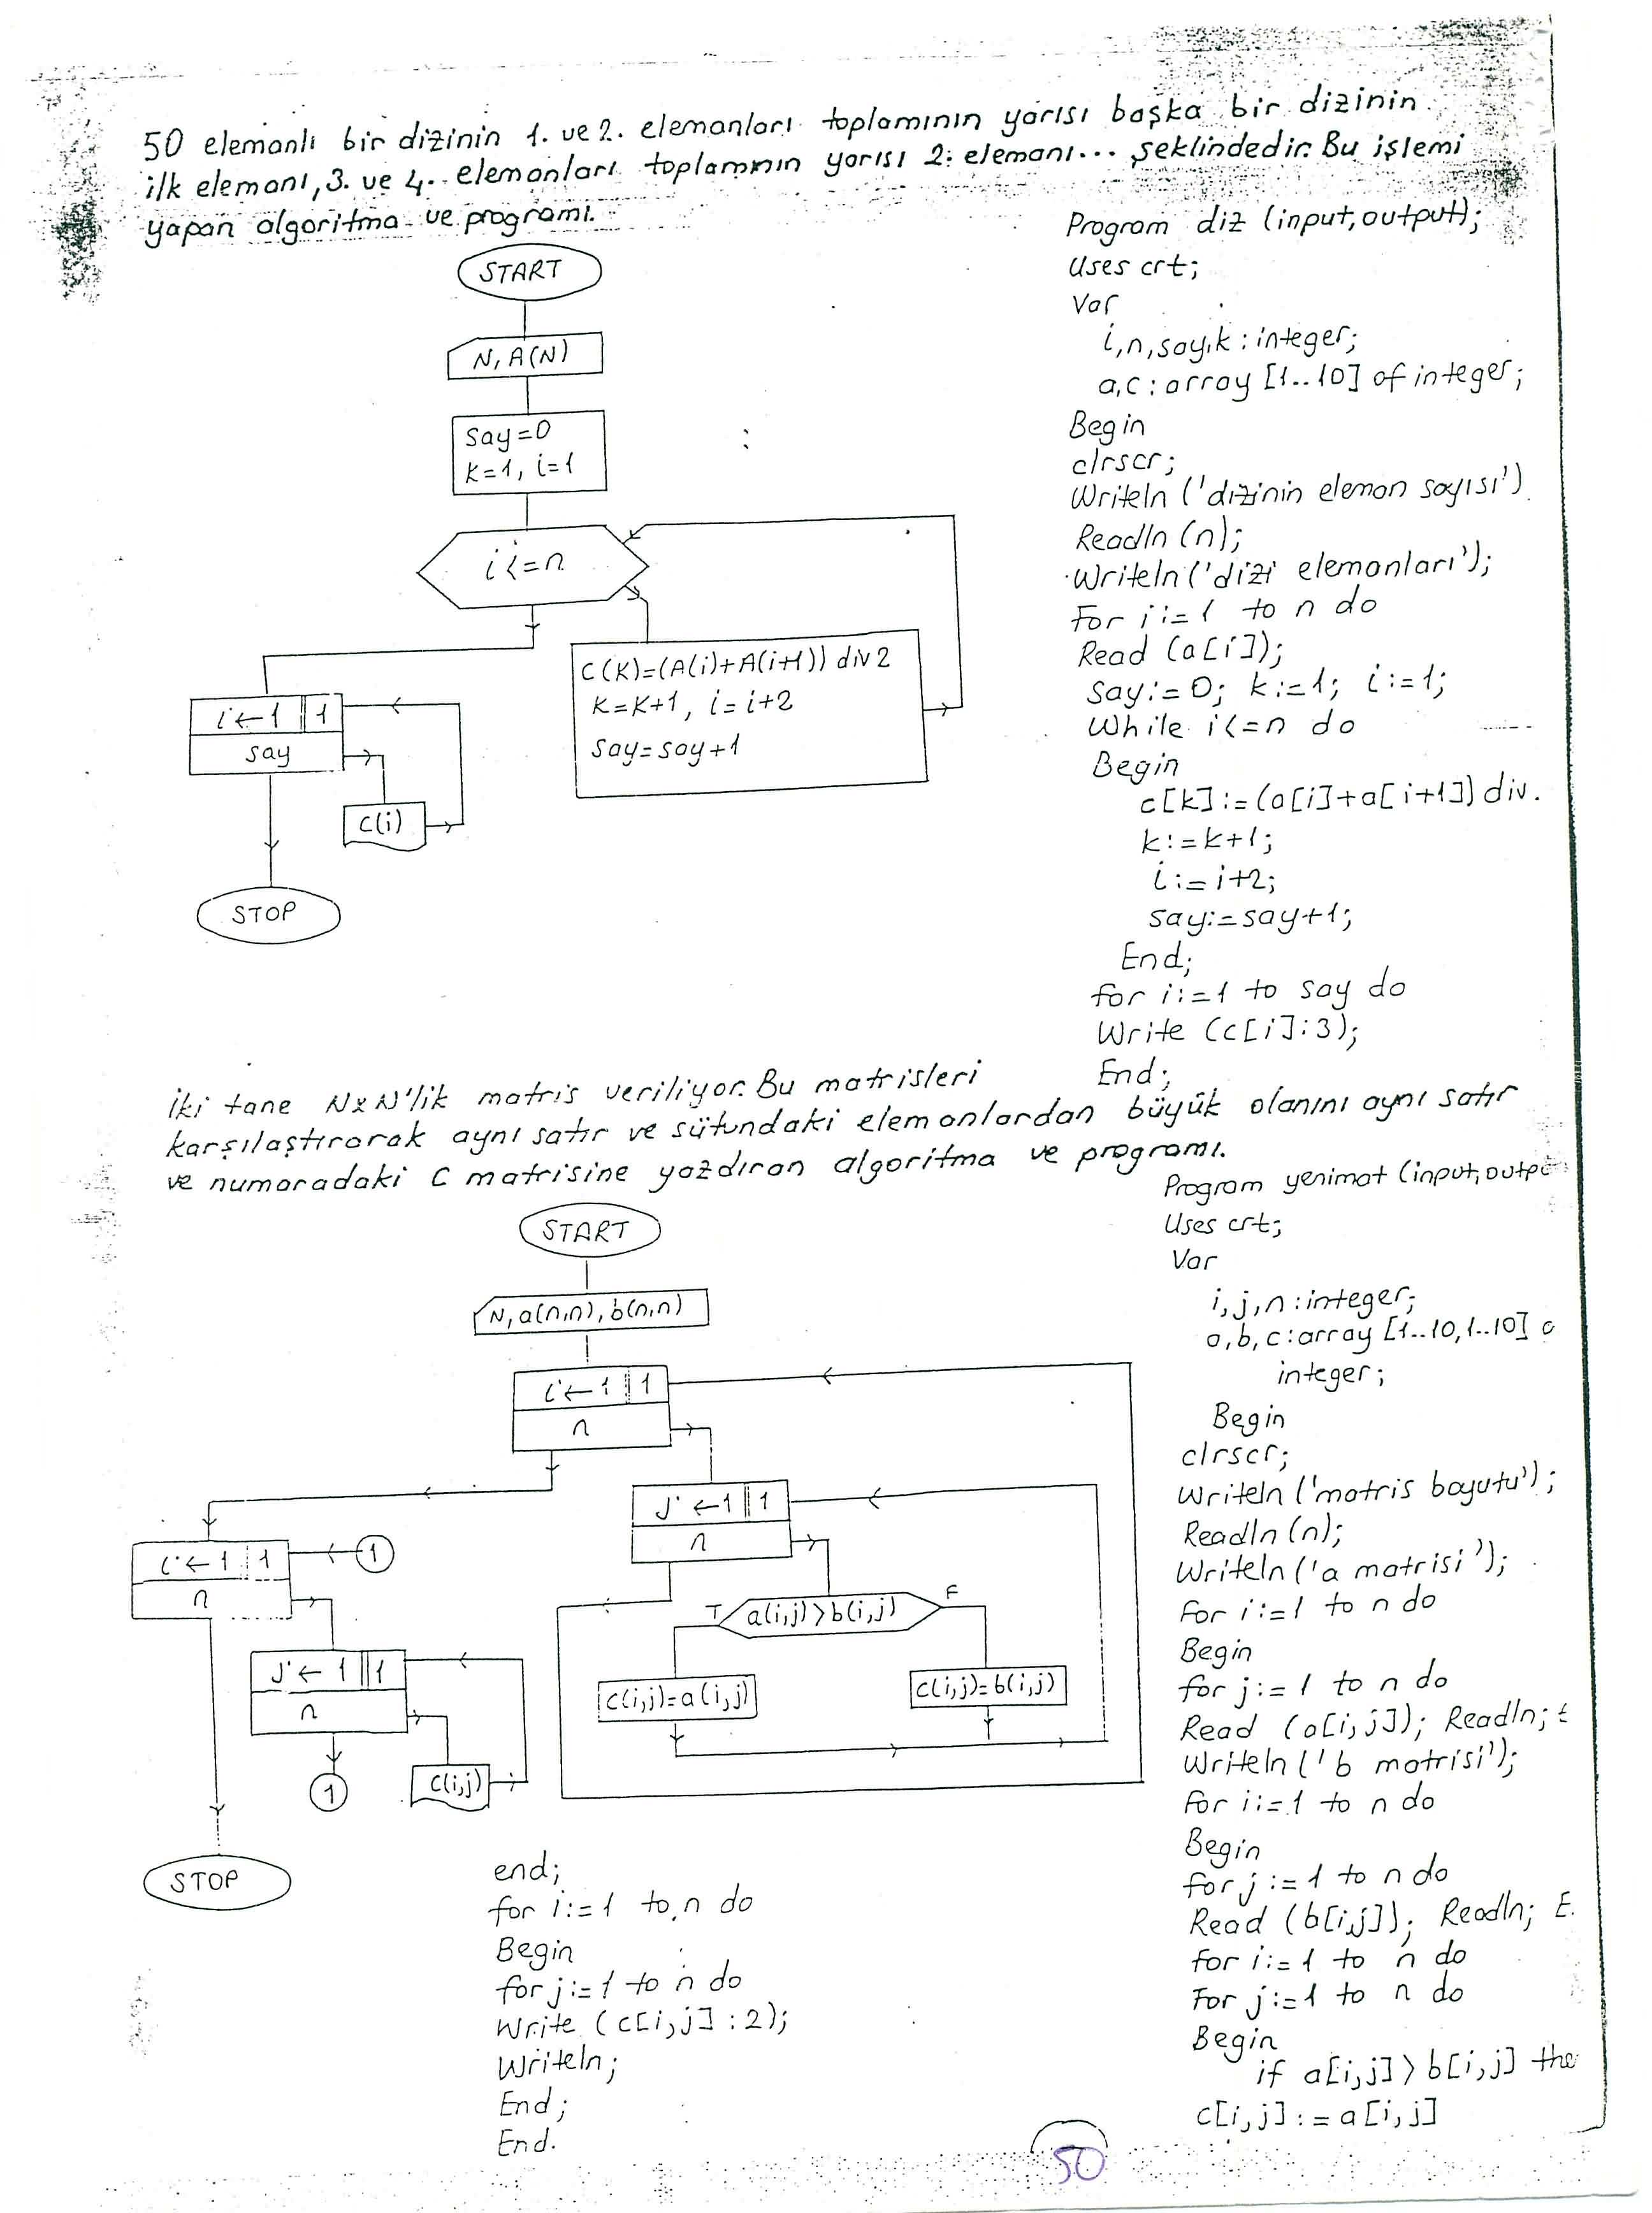 50 elemanlı bir dizinin 1. ve 2. elemanları toplamının yarısı başka bir dizinin
ilk elemanı, 3. ve 4. elemanları toplamının yarısı 2. elemanı... şeklindedir. Bu işlemi
yapan algoritma ve programı.
START
N, A(N)
Say=0
k=1, i=1
i<=n
C(K)=(A(i)+A(i+1)) div 2
K=K+1, i=i+2
Say=say+1
i←1 1
say
C(i)
STOP
Program diz (input,output);
Uses crt;
Var
i,n,say,k : integer;
a,c : array [1..10] of integer;
Begin
clrscr;
Writeln ('dizinin eleman sayısı')
Readln (n);
Writeln ('dizi elemanları');
For i:=1 to n do
Read (a[i]);
Say:=0; k:=1; i:=1;
While i<=n do
Begin
c[k]:=(a[i]+a[i+1]) div.
k:=k+1;
i:=i+2;
say:=say+1;
End;
for i:=1 to say do
Write (c[i]:3);
End;
İki tane NxN'lik matris veriliyor. Bu matrisleri
karşılaştırarak aynı satır ve sütundaki elemanlardan büyük olanını aynı satır
ve numaradaki C matrisine yazdıran algoritma ve programı.
START
N, a(n,n), b(n,n)
i←1 1
n
J←1 1
n
T a(i,j)>b(i,j) F
c(i,j)=a(i,j)
c(i,j)=b(i,j)
i←1 1
n
1
J←1 1
n
1
C(i,j)
STOP
Program yenimat (input,outp
Uses crt;
Var
i,j,n : integer;
a,b,c : array [1..10,1..10] o
integer;
Begin
clrscr;
Writeln ('matris boyutu');
Readln (n);
Writeln ('a matrisi');
For i:=1 to n do
Begin
for j:=1 to n do
Read (a[i,j]); Readln;
Writeln ('b matrisi');
For i:=1 to n do
Begin
for j:=1 to n do
Read (b[i,j]); Readln; E.
for i:=1 to n do
For j:=1 to n do
Begin
if a[i,j]>b[i,j] the
c[i,j]:=a[i,j]
end;
for i:=1 to n do
Begin
for j:=1 to n do
Write (c[i,j]:2);
Writeln;
End;
End.
50